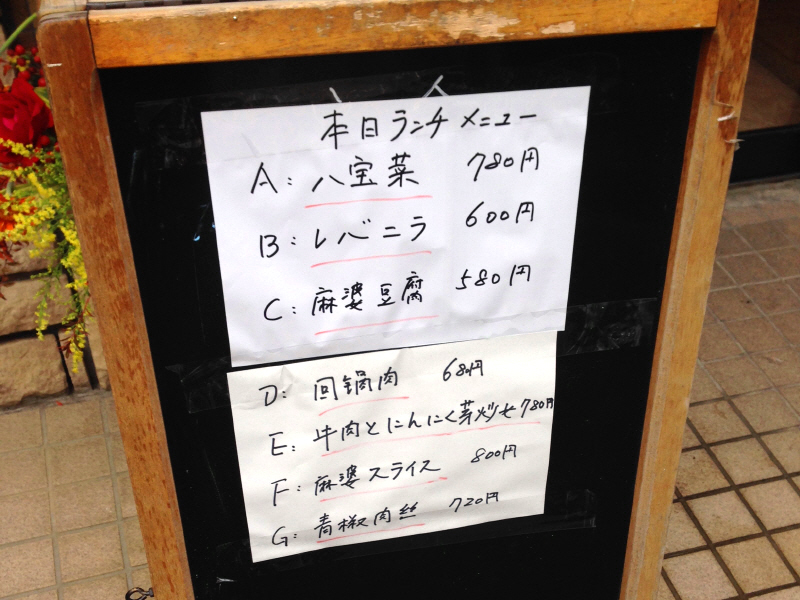 本日ランチメニュー
A: 八宝菜 780円
B: レバニラ 600円
C: 麻婆豆腐 580円
D: 回鍋肉 680円
E: 牛肉とにんにく芽炒め 780円
F: 麻婆スライス 800円
G: 青椒肉絲 720円